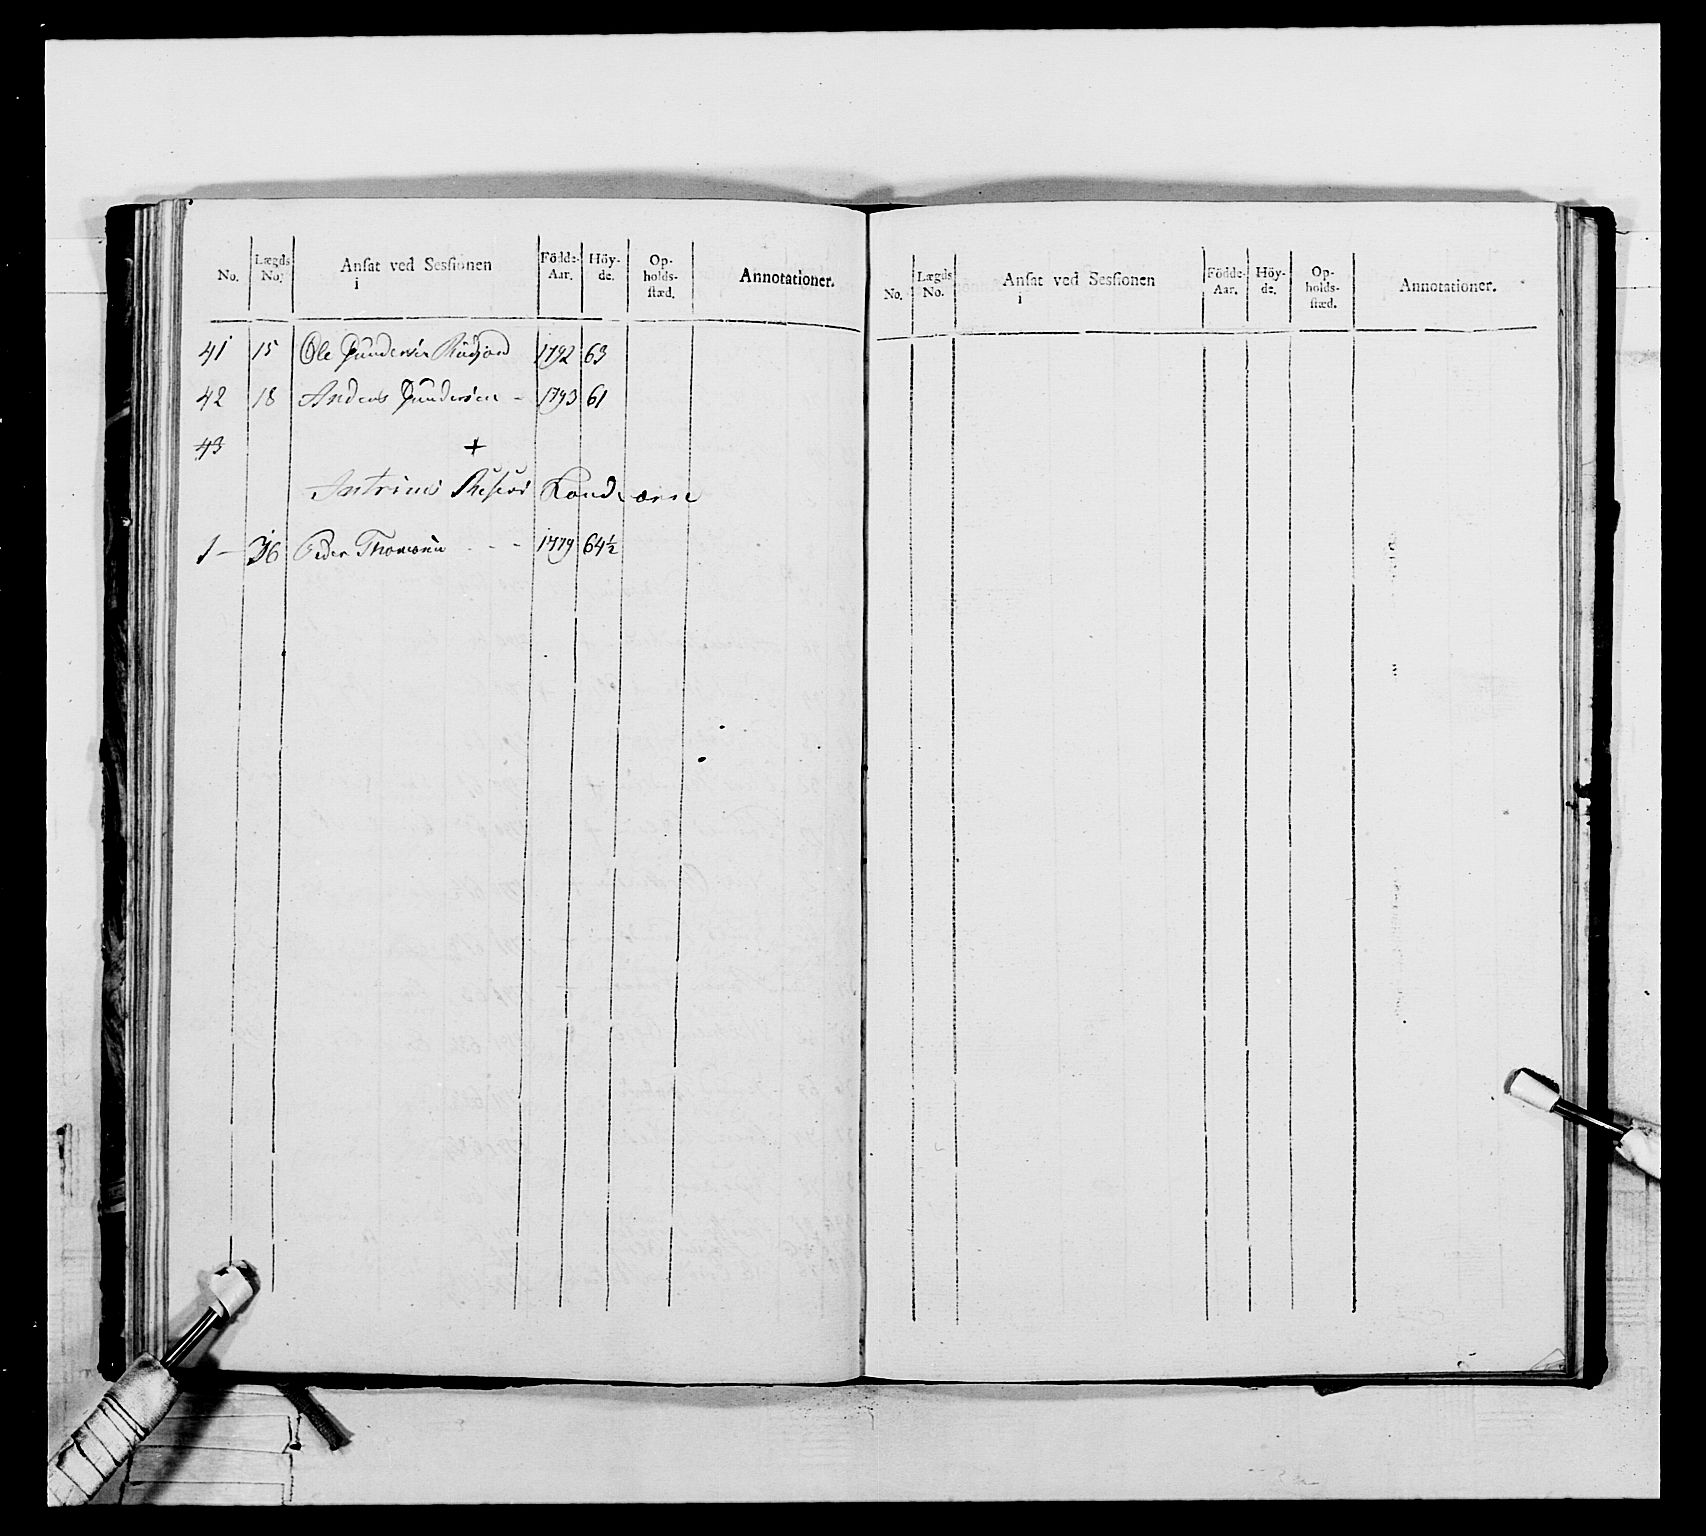 No. Lægds No. Ansat ved Sessionen i Födde-Aar. Höy-de. Op-holds-stæd. Annotationer.
41 15 Ole Gundersen 1792 63
42 18 Anders Gundersen - 1793 61
43 +
Landværn
1 - 36 Peder Thomesen - - - 1779 64½
No. Lægds No. Ansat ved Sessionen i Födde-Aar. Höy-de. Op-holds-stæd. Annotationer.